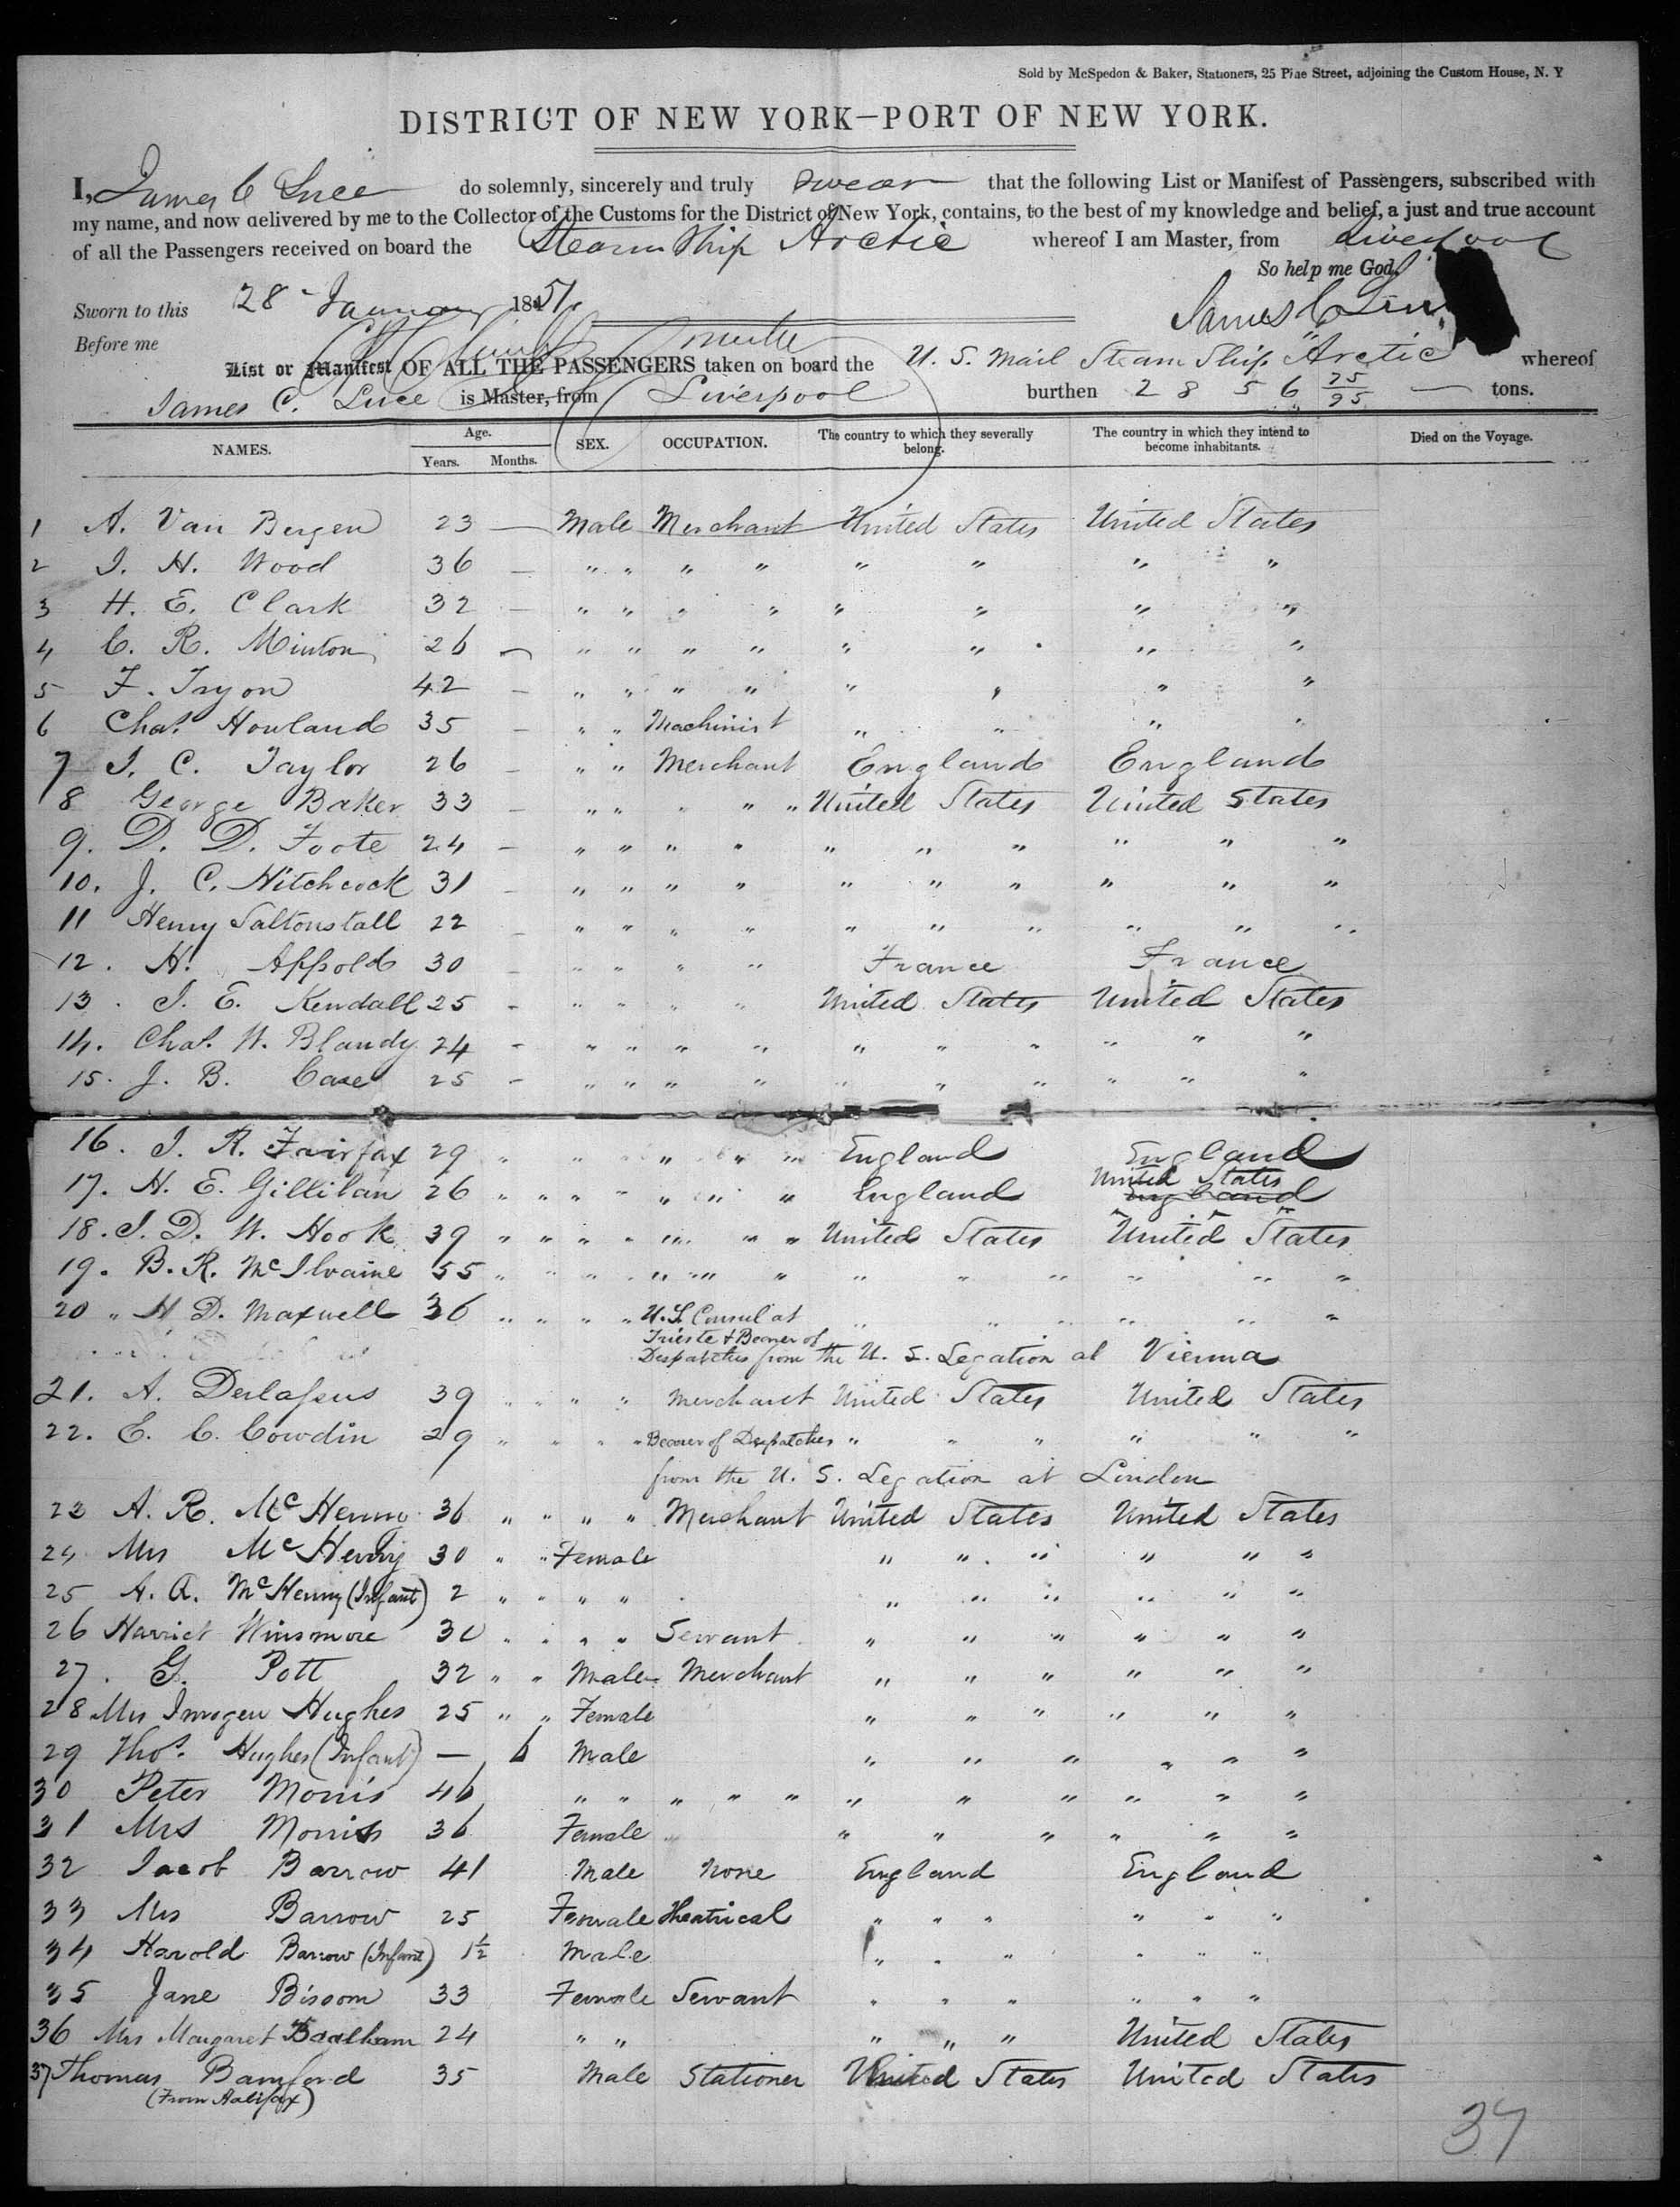 Sold by McSpedon & Baker, Stationers, 25 Pine Street, adjoining the Custom House, N. Y
DISTRICT OF NEW YORK—PORT OF NEW YORK.
I, James C Luce do solemnly, sincerely and truly swear that the following List or Manifest of Passengers, subscribed with
my name, and now delivered by me to the Collector of the Customs for the District of New York, contains, to the best of my knowledge and belief, a just and true account
of all the Passengers received on board the Steam Ship Arctic whereof I am Master, from Liverpool
So help me God.
Sworn to this 28 January 1851. James C Luce
Before me
List or Manifest OF ALL THE PASSENGERS taken on board the U. S. Mail Steam Ship "Arctic" whereof
James C. Luce is Master, from Liverpool burthen 2856 75/95 — tons.
NAMES. Age. Years. Months. SEX. OCCUPATION. The country to which they severally belong. The country in which they intend to become inhabitants. Died on the Voyage.
1 A. Van Bergen 23 — Male Merchant United States United States
2 I. H. Wood 36 — " " " " " " " "
3 H. E. Clark 32 — " " " " " " " "
4 C. R. Minton 26 — " " " " " " " "
5 F. Tryon 42 — " " " " " " " "
6 Chas. Howland 35 — " " Machinist " " " "
7 J. C. Taylor 26 — " " Merchant England England
8 George Baker 33 — " " " " " United States United States
9. D. D. Foote 24 — " " " " " " " " " "
10. J. C. Hitchcock 31 — " " " " " " " " " "
11 Henry Saltonstall 22 — " " " " " " " " " "
12. H. Appold 30 — " " " " France France
13. J. E. Kendall 25 — " " " " United States United States
14. Chas. W. Blandy 24 — " " " " " " " " " "
15. J. B. Case 25 — " " " " " " " " " "
16. J. R. Fairfax 29 " " " " " " England England
17. H. E. Gillilan 26 " " " " " " " England United States England
18. J. D. W. Hook 39 " " " " " " " United States United States
19. B. R. McIlvaine 55 " " " " " " " " " " " " "
20 " H D. Maxwell 36 " " " " U.S. Consul at " " " " " "
Trieste & Bearer of
Despatches from the U. S. Legation at Vienna
21. A. Derlassus 39 " " " " Merchant United States United States
22. E. C. Cowdin 29 " " " " Bearer of Despatches " " " " " "
from the U. S. Legation at London
23 A. R. McHenry 36 " " " " Merchant United States United States
24 Mrs McHenry 30 " " Female " " " " " "
25 A. A. McHenry (Infant) 2 " " " " " " " " " "
26 Harriet Winsmore 30 " " " " Servant " " " " " "
27. G. Pott 32 " " Male Merchant " " " " " "
28 Mrs Imogen Hughes 25 " " Female " " " " " "
29 Thos. Hughes (Infant) — 6 Male " " " " " "
30 Peter Morris 46 " " " " " " " " " " "
31 Mrs Morris 36 Female " " " " " "
32 Jacob Barrow 41 Male None England England
33 Mrs Barrow 25 Female Theatrical " " " " " "
34 Harold Barrow (Infant) 1½ Male " " " " " "
35 Jane Bisom 33 Female Servant " " " " " "
36 Mrs Margaret Badham 24 " " " " " United States
37 Thomas Bamford 35 Male Stationer United States United States
(From Halifax)
37